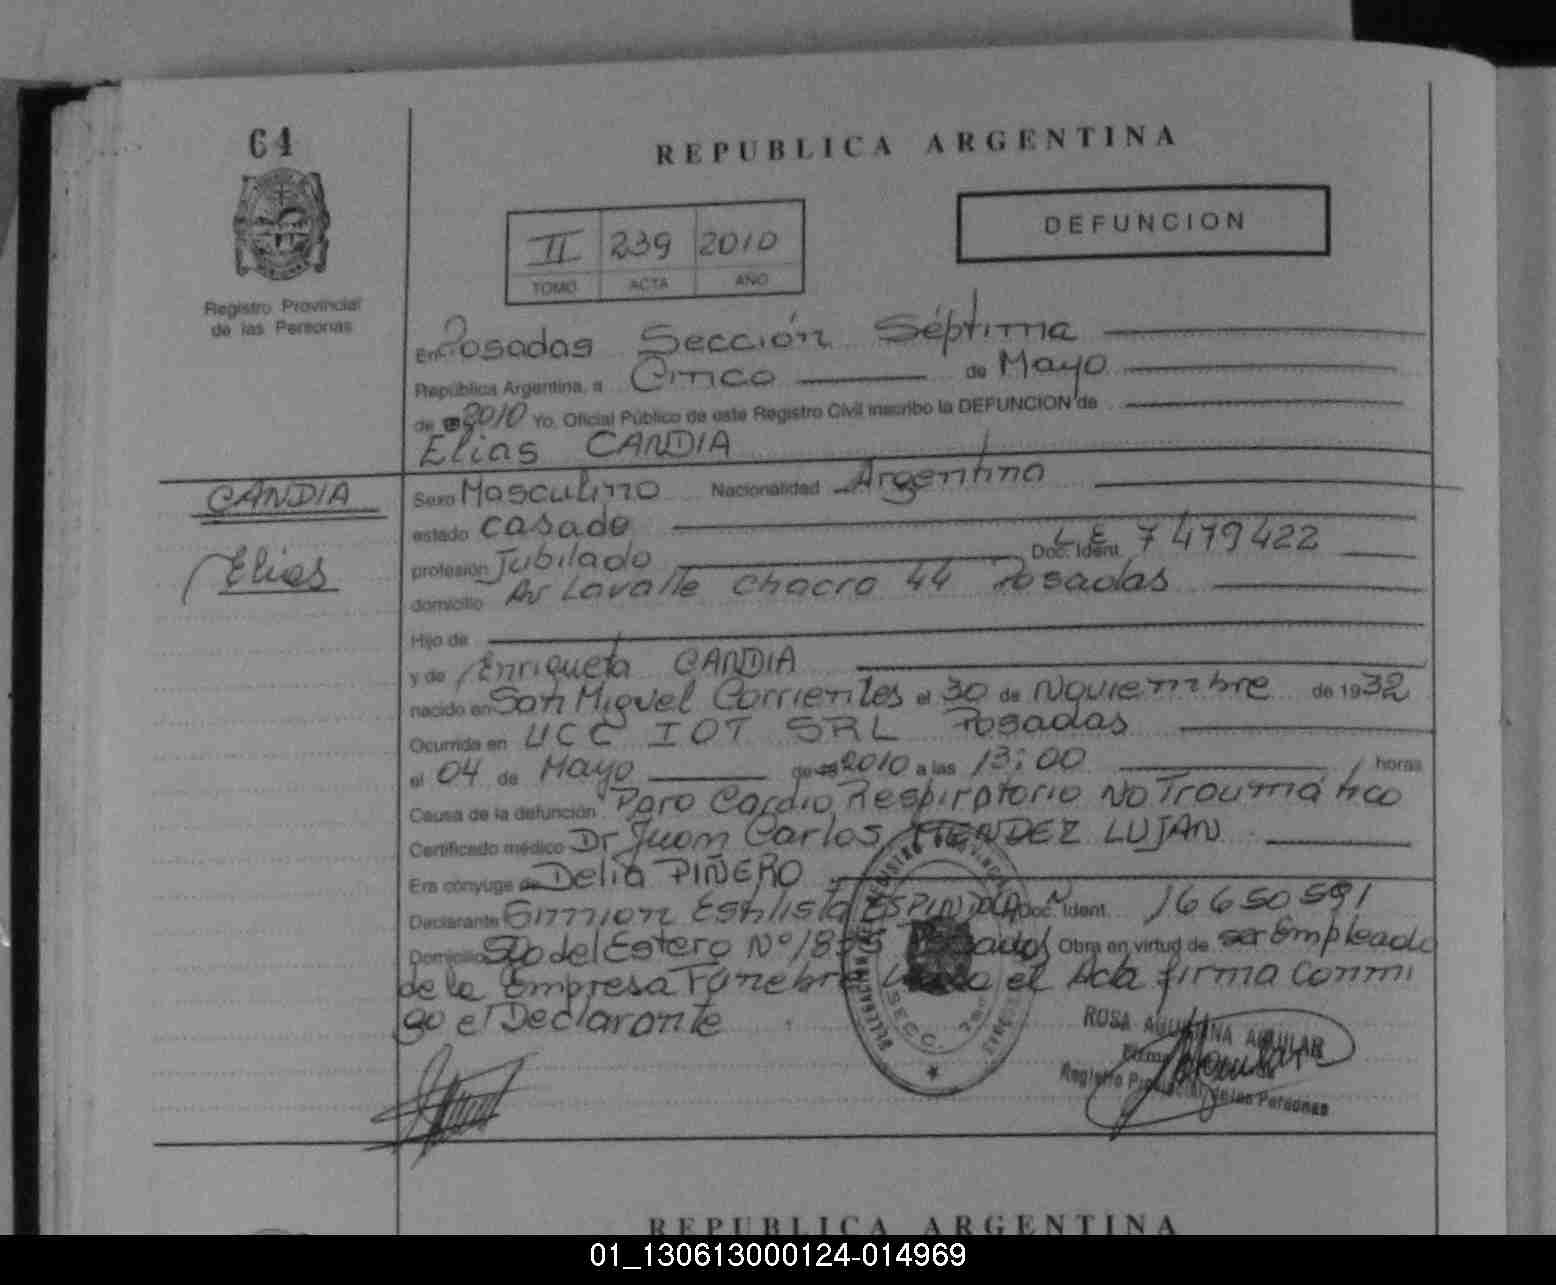 64
REPUBLICA ARGENTINA
II 239 2010
TOMO ACTA AÑO
DEFUNCION
Registro Provincial
de las Personas
En Posadas Sección Séptima
República Argentina, a Cinco de Mayo
de 2010 Yo, Oficial Público de este Registro Civil inscribo la DEFUNCION de
Elias CANDIA
CANDIA
Elias
Sexo Masculino Nacionalidad Argentina
estado casado
profesión Jubilado Doc. Ident. L.E 7479422
domicilio Av Lavalle chacra 44 Posadas
Hijo de
y de Enriqueta CANDIA
nacido en San Miguel Corrientes el 30 de Noviembre de 1932
Ocurrida en UCC IOT SRL Posadas
el 04 de Mayo de 2010 a las 13:00 horas
Causa de la defunción Paro Cardio Respiratorio No Traumático
Certificado médico Dr Juan Carlos MENDEZ LUJAN
Era cónyuge de Delia PIÑERO
Declarante ESPINDOLA Doc. Ident. 16650591
Domicilio Sgo del Estero Nº Posadas Obra en virtud de ser Empleado
de la Empresa Funebre el Acta firma conmi
go el Declarante
ROSA AGUSTINA AGUILAR
Registro Provincial de las Personas
REPUBLICA ARGENTINA
01_130613000124-014969